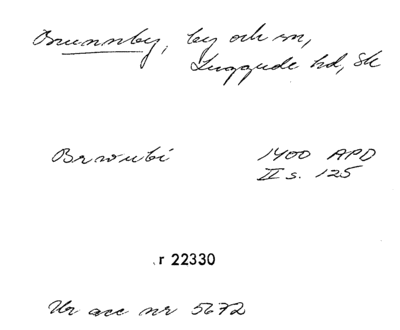 Brunnby, by och sn,
Luggude hd, Sk
Brwnbi 1400 APD
II s. 125
r 22330
Ur acc nr 5672